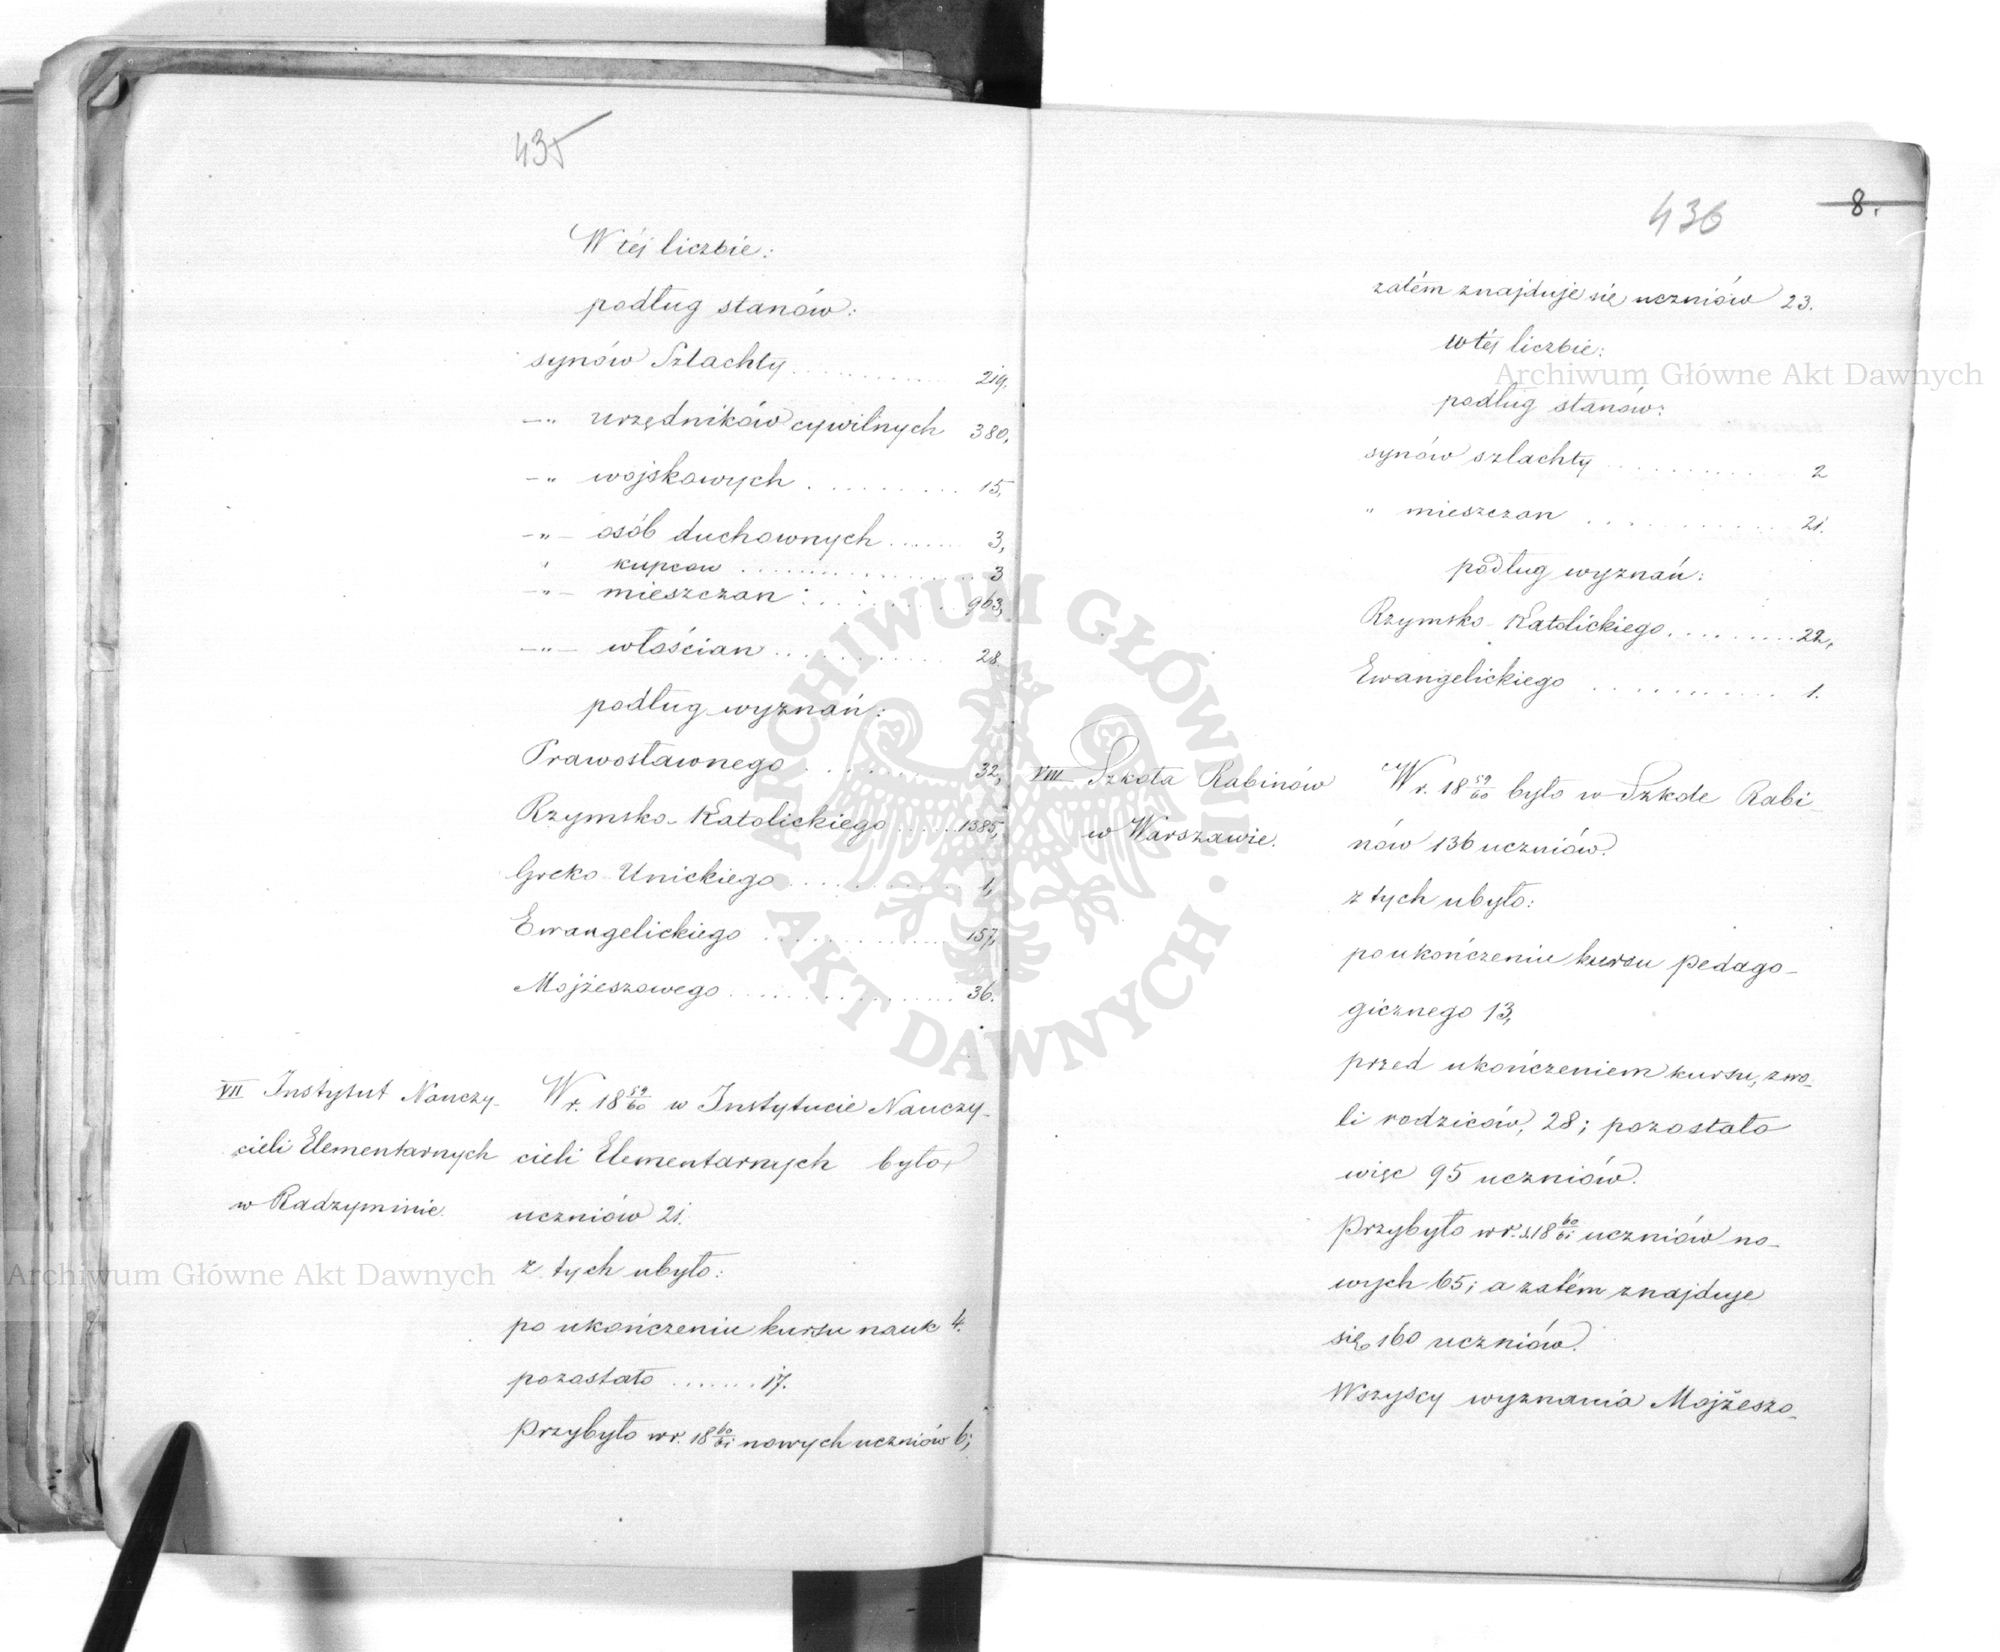 435
W téj liczbie:
podług stanów:
synów Szlachty . . . . . . . . . . . 219,
—„ urzędników cywilnych 380,
—„ wojskowych . . . . . . . . . . 15,
—„— osób duchownych . . . . . . 3,
„ kupców . . . . . . . . . . . . . . . 3
—„— mieszczan . . . . . . . . . . 963,
—„— włościan . . . . . . . . . . . 28.
podług wyznań:
Prawosławnego . . . . . . . . . . 32,
Rzymsko-Katolickiego . . . . . 1385,
Greko Unickiego . . . . . . . . . . 1,
Ewangelickiego . . . . . . . . . . 157,
Mojżeszowego . . . . . . . . . . . 36.
VII Instytut Nauczy-
cieli Elementarnych
w Radzyminie.
W r. 18 59/60 w Instytucie Nauczy-
cieli Elementarnych było
uczniów 21.
z tych ubyło:
po ukończeniu kursu nauk 4.
pozostało . . . . . . . 17.
Przybyło w r. 18 60/61 nowych uczniów 6;
436
8.
zatém znajduje się uczniów 23.
w téj liczbie:
podług stanów:
synów szlachty . . . . . . . . . . . 2
„ mieszczan . . . . . . . . . . . 21.
podług wyznań:
Rzymsko-Katolickiego . . . . . . . . 22,
Ewangelickiego . . . . . . . . . . . 1.
VIII Szkoła Rabinów
w Warszawie.
W r. 18 59/60 było w Szkole Rabi-
nów 136 uczniów.
z tych ubyło:
po ukończeniu kursu pedago-
gicznego 13,
przed ukończeniem kursu, z wo-
li rodziców, 28; pozostało
więc 95 uczniów.
Przybyło w r. s. 18 60/61 uczniów no-
wych 65; a zatém znajduje
się 160 uczniów.
Wszyscy wyznania Mojżeszo-
Archiwum Główne Akt Dawnych
Archiwum Główne Akt Dawnych
ARCHIWUM GŁÓWNE
· AKT DAWNYCH ·